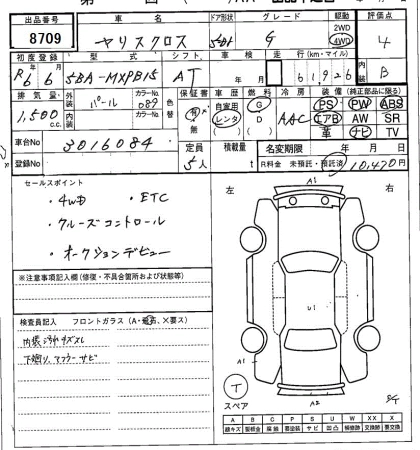 出品番号 車名 ドア形状 グレード 駆動 評価点
8709 ヤリスクロス 5D G 2WD 4WD 4
初度登録 型式 シフト 車検 走行(km・マイル) 内装 B
R6 6 5BA-MXPB15 AT 年 月 61926
排気量 外装 カラーNo. 色替 保証書 車歴 燃料 冷房 装備(純正部品に限る)
1,500 c.c. パール 089 有 無 自家用 レンタ G D AAC PS PW ABS
内装 カラーNo. エアB AW SR
革 ナビ TV
車台No 3016084
登録No 定員 5人 積載量 t 名変期限 年 月 日
R料金 未預託・預託済 10,470円
セールスポイント
・4WD ・ETC
・クルーズコントロール
・オークションデビュー
※注意事項記入欄(修復・不具合箇所および状態等)
検査員記入 フロントガラス(A・飛石、×要ス)
内装汚れキズスレ
下廻り、マフラーサビ
左 右
A1
U1
A1
A2
T
スペア
A B C P S U W XX X
線キズ
サビ
凹凸
補修跡
交換跡
要交換